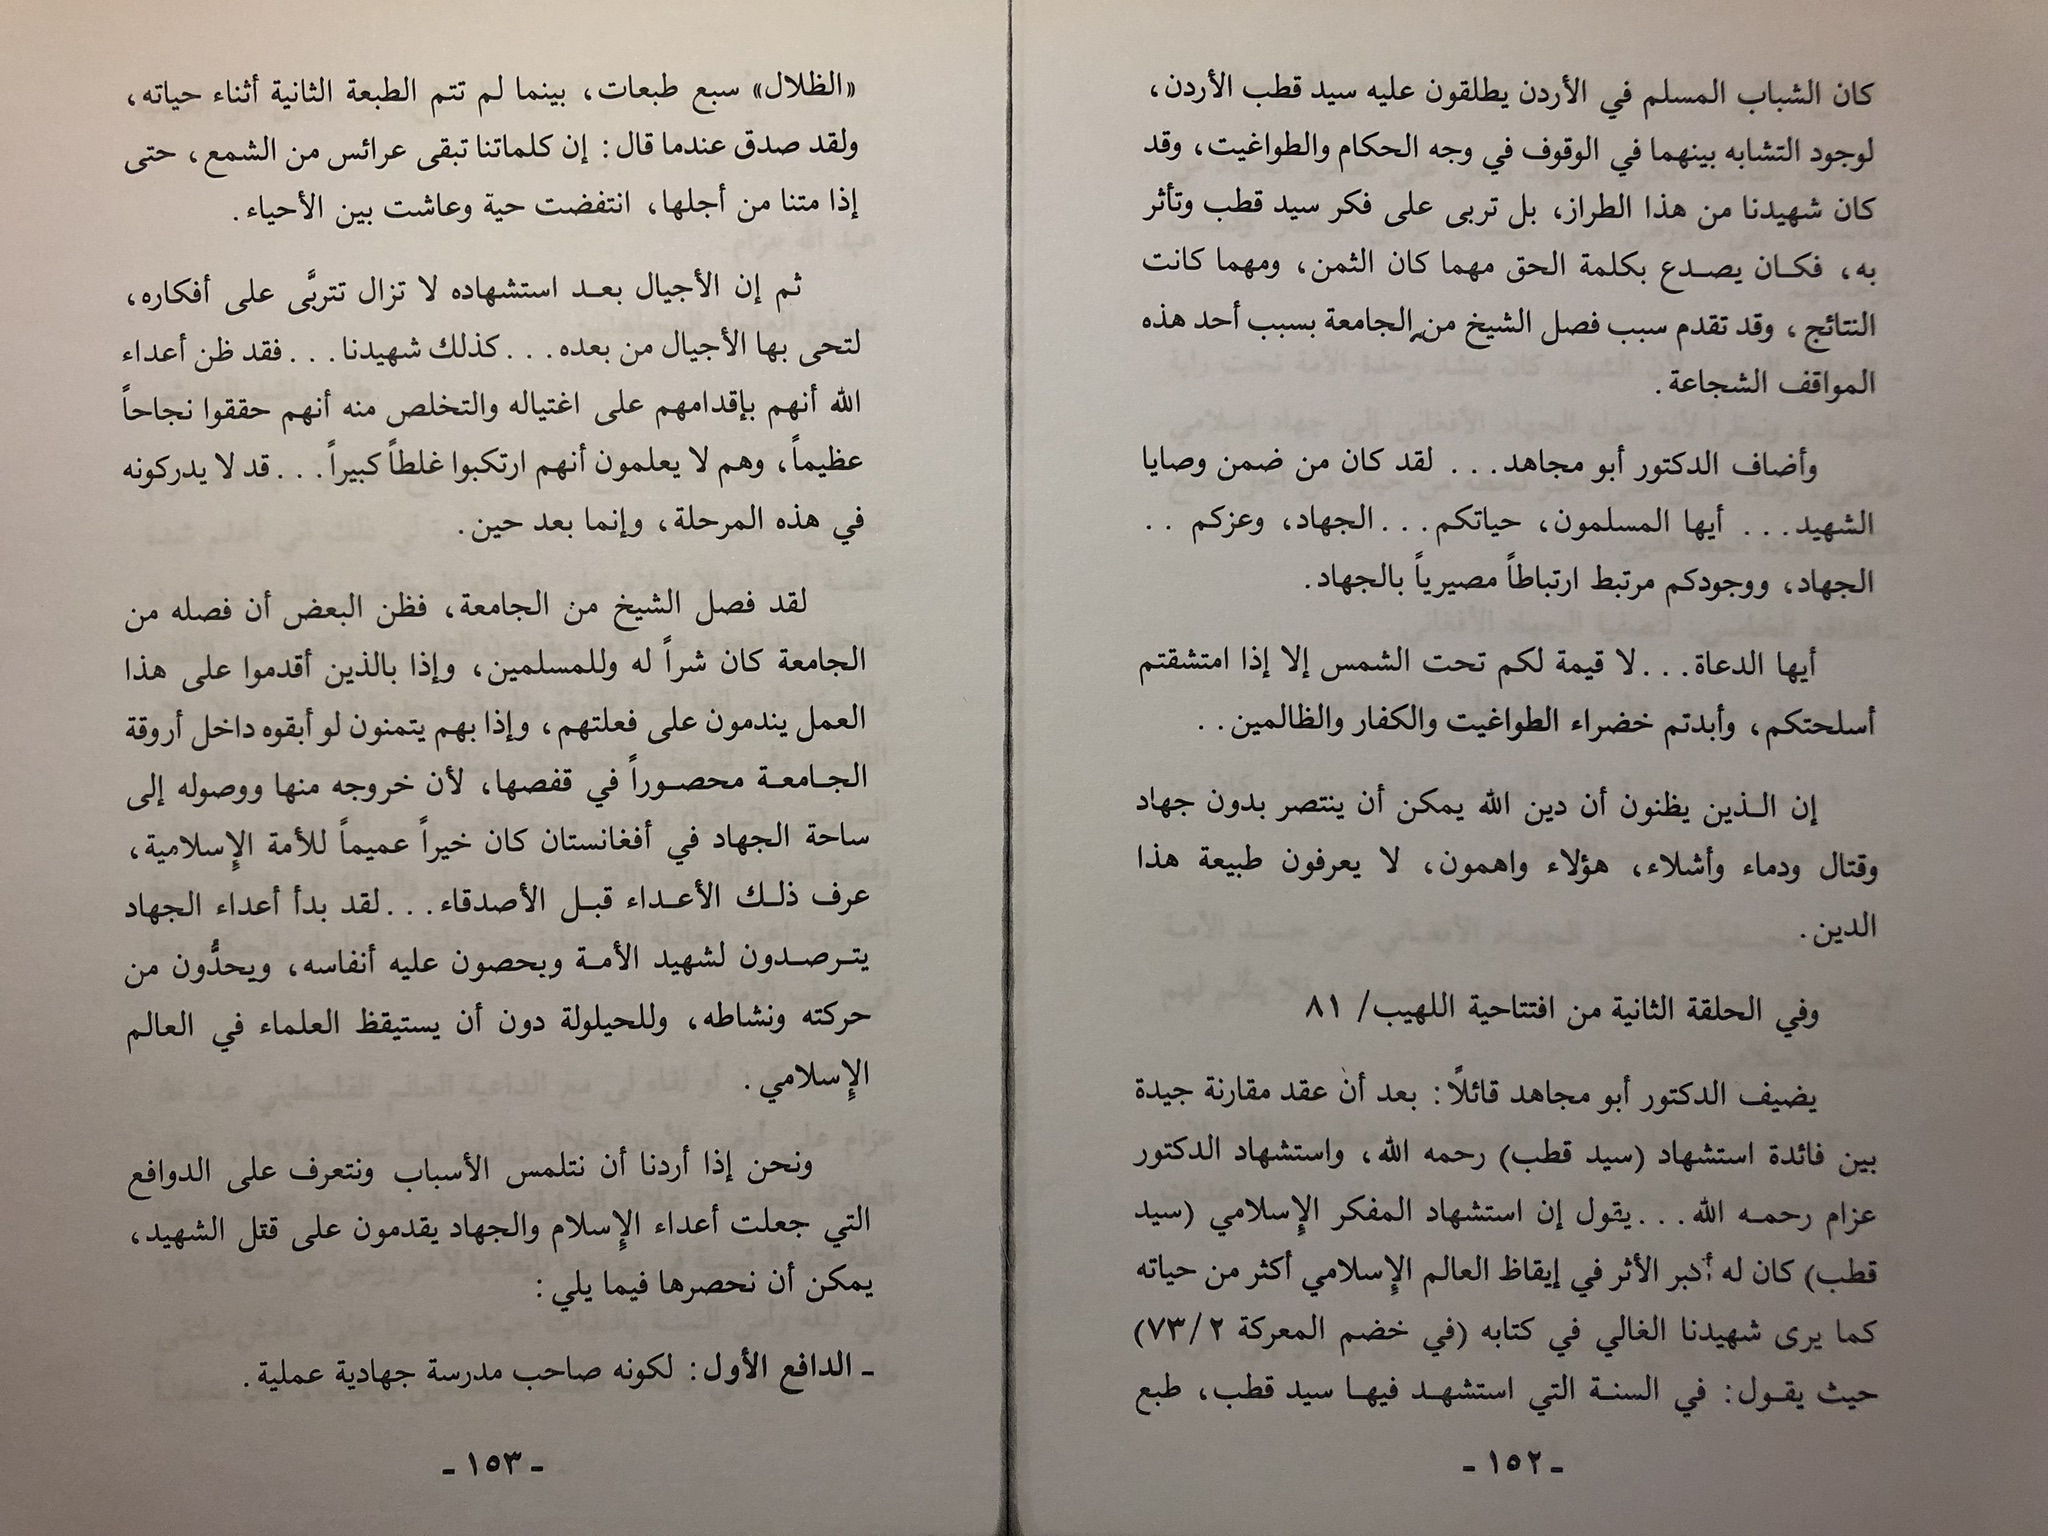 كان الشباب المسلم في الأردن يطلقون عليه سيد قطب الأردن،
لوجود التشابه بينهما في الوقوف في وجه الحكام والطواغيت، وقد
كان شهيدنا من هذا الطراز، بل تربى على فكر سيد قطب وتأثر
به، فكان يصدع بكلمة الحق مهما كان الثمن، ومهما كانت
النتائج، وقد تقدم سبب فصل الشيخ من الجامعة بسبب أحد هذه
المواقف الشجاعة.
وأضاف الدكتور أبو مجاهد... لقد كان من ضمن وصايا
الشهيد... أيها المسلمون، حياتكم... الجهاد، وعزكم ..
الجهاد، ووجودكم مرتبط ارتباطاً مصيرياً بالجهاد.
أيها الدعاة... لا قيمة لكم تحت الشمس إلا إذا امتشقتم
أسلحتكم، وأبدتم خضراء الطواغيت والكفار والظالمين..
إن الذين يظنون أن دين الله يمكن أن ينتصر بدون جهاد
وقتال ودماء وأشلاء، هؤلاء واهمون، لا يعرفون طبيعة هذا
الدين.
وفي الحلقة الثانية من افتتاحية اللهيب/ ٨١
يضيف الدكتور أبو مجاهد قائلاً: بعد أن عقد مقارنة جيدة
بين فائدة استشهاد (سيد قطب) رحمه الله، واستشهاد الدكتور
عزام رحمه الله... يقول إن استشهاد المفكر الإسلامي (سيد
قطب) كان له أكبر الأثر في إيقاظ العالم الإسلامي أكثر من حياته
كما يرى شهيدنا الغالي في كتابه (في خضم المعركة ٧٣/٢)
حيث يقول: في السنة التي استشهد فيها سيد قطب، طبع
ـ ١٥٢ ـ
«الظلال» سبع طبعات، بينما لم تتم الطبعة الثانية أثناء حياته،
ولقد صدق عندما قال: إن كلماتنا تبقى عرائس من الشمع، حتى
إذا متنا من أجلها، انتفضت حية وعاشت بين الأحياء.
ثم إن الأجيال بعد استشهاده لا تزال تتربَّى على أفكاره،
لتحى بها الأجيال من بعده... كذلك شهيدنا... فقد ظن أعداء
الله أنهم بإقدامهم على اغتياله والتخلص منه أنهم حققوا نجاحاً
عظيماً، وهم لا يعلمون أنهم ارتكبوا غلطاً كبيراً... قد لا يدركونه
في هذه المرحلة، وإنما بعد حين.
لقد فصل الشيخ من الجامعة، فظن البعض أن فصله من
الجامعة كان شراً له وللمسلمين، وإذا بالذين أقدموا على هذا
العمل يندمون على فعلتهم، وإذا بهم يتمنون لو أبقوه داخل أروقة
الجامعة محصوراً في قفصها، لأن خروجه منها ووصوله إلى
ساحة الجهاد في أفغانستان كان خيراً عميماً للأمة الإسلامية،
عرف ذلك الأعداء قبل الأصدقاء... لقد بدأ أعداء الجهاد
يترصدون لشهيد الأمة وبحصون عليه أنفاسه، ويحدُّون من
حركته ونشاطه، وللحيلولة دون أن يستيقظ العلماء في العالم
الإسلامي.
ونحن إذا أردنا أن نتلمس الأسباب ونتعرف على الدوافع
التي جعلت أعداء الإسلام والجهاد يقدمون على ققل الشهيد،
يمكن أن نحصرها فيما يلي:
ـ الدافع الأول: لكونه صاحب مدرسة جهادية عملية.
ـ ١٥٣ ـ